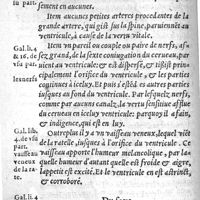 su part.
sement en aucunes.
Item aucunes petites arteres procedantes de la
grande artere, qui gist sus la spine, paruiennẽt au
ventricule, à cause de la vertu vitale.
Gal. li. 4
& 16. de
vsu par.
les nerfs
Item vn pareil ou couple ou paire de nerfs, as
sez grand, de la sexte coniugation du cerueau, par
uient au ventricule: & est dispersé, & tissu princi-
palement l'orifice du ventricule, & les parties
continues à iceluy, & puis s'estend es autres parties
iusques au fond du ventricule. Par lesquels nerfs,
comme par aucuns canalz, la vertu sensitiue afflue
du cerueau en iceluy ventricule. Parquoy il a fain,
& indigence, qui est en luy.
Gal. lib.
4. de vsu
part.
vaisseau
veneux
de la
ratelle.
Outreplus il y a vn vaisseau veneux, lequel vient
de la ratelle, iusques à l'orifice du ventricule. Ce
vaisseau apporte l'humeur melancolique, par la-
quelle humeur d'autant quelle est froide & aigre,
l'appetit est excité. Et le ventricule en est astrinct,
& corroboré.
Gal. li. 4